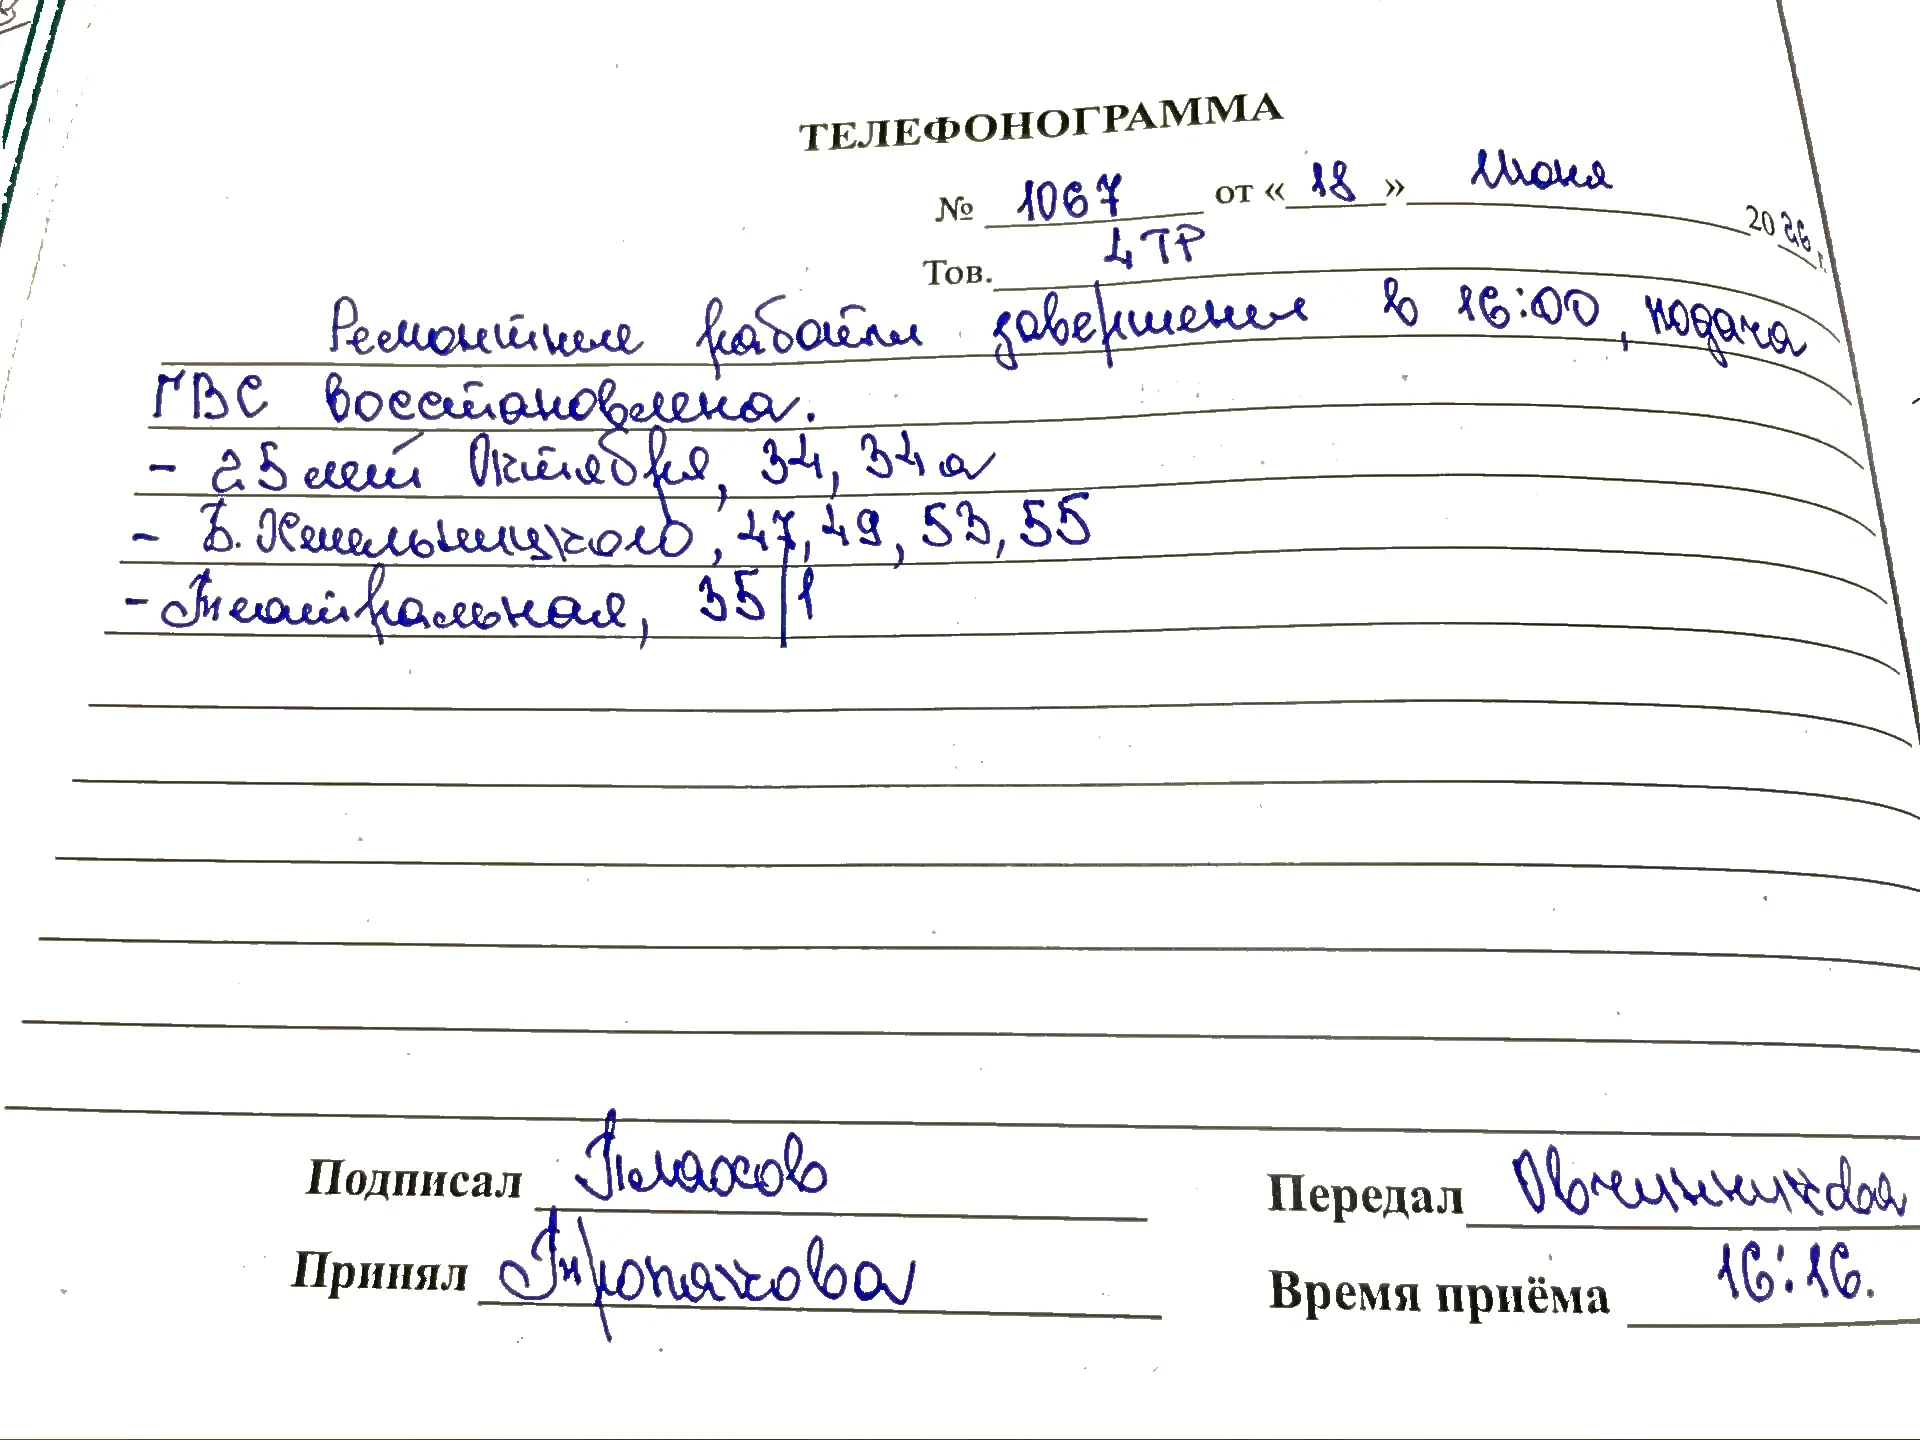 ТЕЛЕФОНОГРАММА
№ 1067 от «18» Июня 2026 г.
Тов. 4 ТР
Ремонтные работы завершены в 16:00, подача
ГВС восстановлена.
- 25 лет Октября, 34, 34а
- Б. Хмельницкого, 47, 49, 53, 55
- Театральная, 35/1
Подписал Плахов Передал Овчинникова
Принял Тропакова Время приёма 16:16.